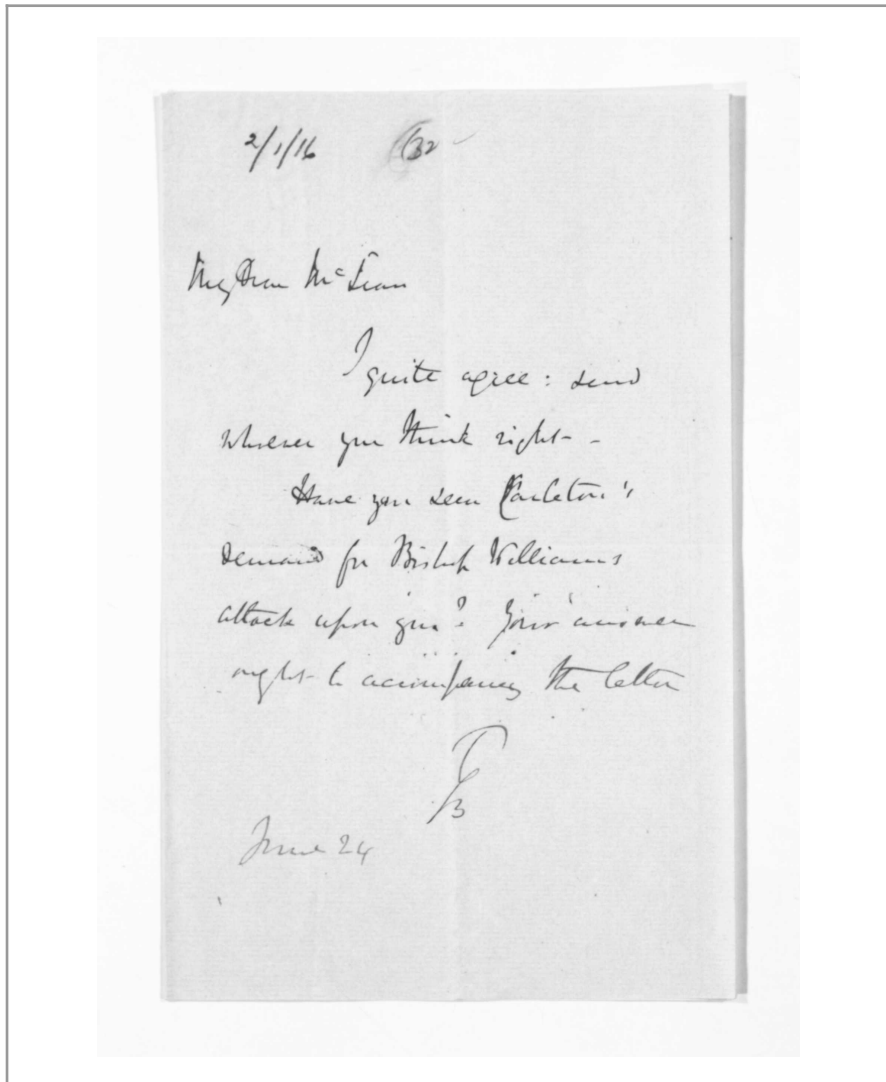 2/1/16 132
My Dear McLean
I quite agree: send
wherever you think right -
Have you seen Carleton's
demand for Bishop Williams
attack upon you? Your answer
ought to accompany the letter
TGB
June 24